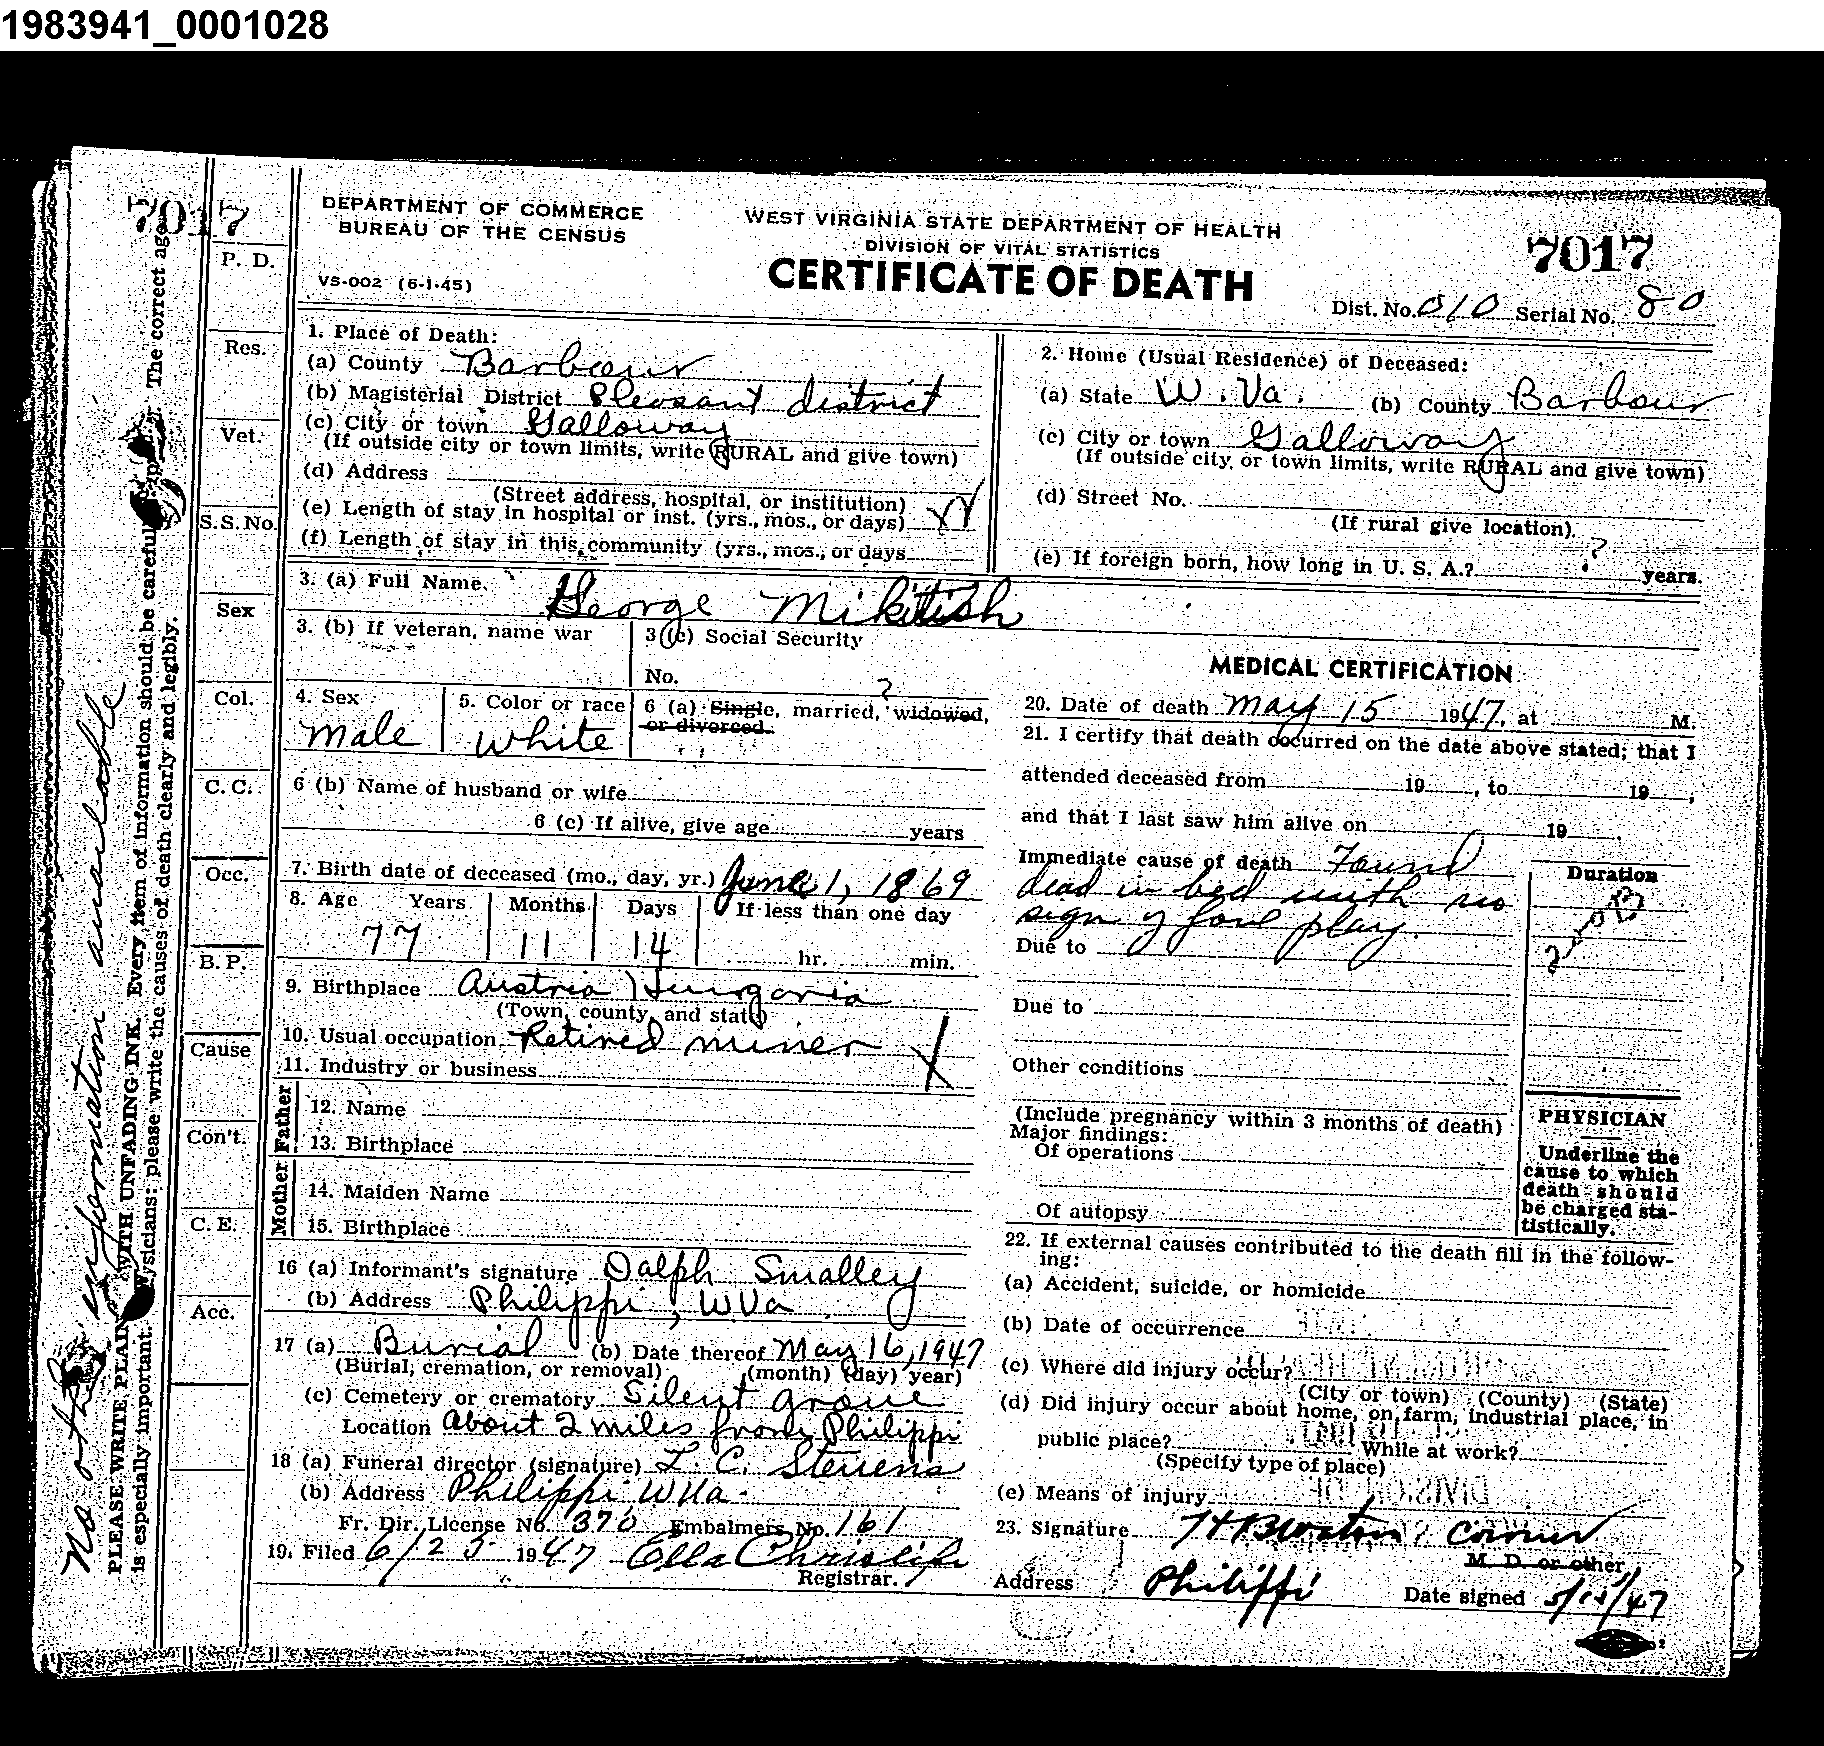 1983941_0001028
7017
DEPARTMENT OF COMMERCE
BUREAU OF THE CENSUS
VS-002 (6-1-45)
WEST VIRGINIA STATE DEPARTMENT OF HEALTH
DIVISION OF VITAL STATISTICS
CERTIFICATE OF DEATH
7017
Dist. No. 010 Serial No. 80
P. D.
Res.
Vet.
S.S. No.
Sex
Col.
C. C.
Occ.
B. P.
Cause
Con't.
C. E.
Acc.
No other information available
PLEASE WRITE PLAINLY WITH UNFADING INK. Every item of information should be carefully The correct age
is especially important. Physicians: please write the causes of death clearly and legibly.
1. Place of Death:
(a) County Barbour
(b) Magisterial District Pleasant district
(c) City or town Galloway
(If outside city or town limits, write RURAL and give town)
(d) Address
(Street address, hospital, or institution)
(e) Length of stay in hospital or inst. (yrs., mos., or days)
(f) Length of stay in this community (yrs., mos., or days
2. Home (Usual Residence) of Deceased:
(a) State W. Va. (b) County Barbour
(c) City or town Galloway
(If outside city or town limits, write RURAL and give town)
(d) Street No.
(If rural give location)
(e) If foreign born, how long in U. S. A.? ? years.
3. (a) Full Name. George Mikitish
3. (b) If veteran, name war
3 (c) Social Security
No.
4. Sex
male
5. Color or race
white
6 (a) Single, married, widowed, ?
or divorced.
6 (b) Name of husband or wife
6 (c) If alive, give age years
7. Birth date of deceased (mo., day, yr.) June 1, 1869
8. Age Years Months Days If less than one day
77 11 14 hr. min.
9. Birthplace Austria Hungaria
(Town, county, and state)
10. Usual occupation Retired miner X
11. Industry or business
Father
12. Name
13. Birthplace
Mother
14. Maiden Name
15. Birthplace
16 (a) Informant's signature Dalph Smalley
(b) Address Philippi, W Va
17 (a) Burial (b) Date thereof May 16, 1947
(Burial, cremation, or removal) (month) (day) year)
(c) Cemetery or crematory Silent grove
Location about 2 miles from Philippi
18 (a) Funeral director (signature) L. C. Stevens
(b) Address Philippi W Va.
Fr. Dir. License No. 370 Embalmers No. 161
19. Filed 6/25 1947 Ella
Registrar.
MEDICAL CERTIFICATION
20. Date of death May 15 1947, at M.
21. I certify that death occurred on the date above stated; that I
attended deceased from 19 , to 19 ,
and that I last saw him alive on 19 .
Immediate cause of death Found
dead in bed with no
sign of foul play.
Duration
Due to
Due to
Other conditions
(Include pregnancy within 3 months of death)
Major findings:
Of operations
Of autopsy
PHYSICIAN
Underline the
cause to which
death should
be charged sta-
tistically.
22. If external causes contributed to the death fill in the follow-
ing:
(a) Accident, suicide, or homicide
(b) Date of occurrence
(c) Where did injury occur?
(City or town) (County) (State)
(d) Did injury occur about home, on farm, industrial place, in
public place? While at work?
(Specify type of place)
(e) Means of injury
23. Signature
M. D. or other
Address Philippi Date signed 5/15/47